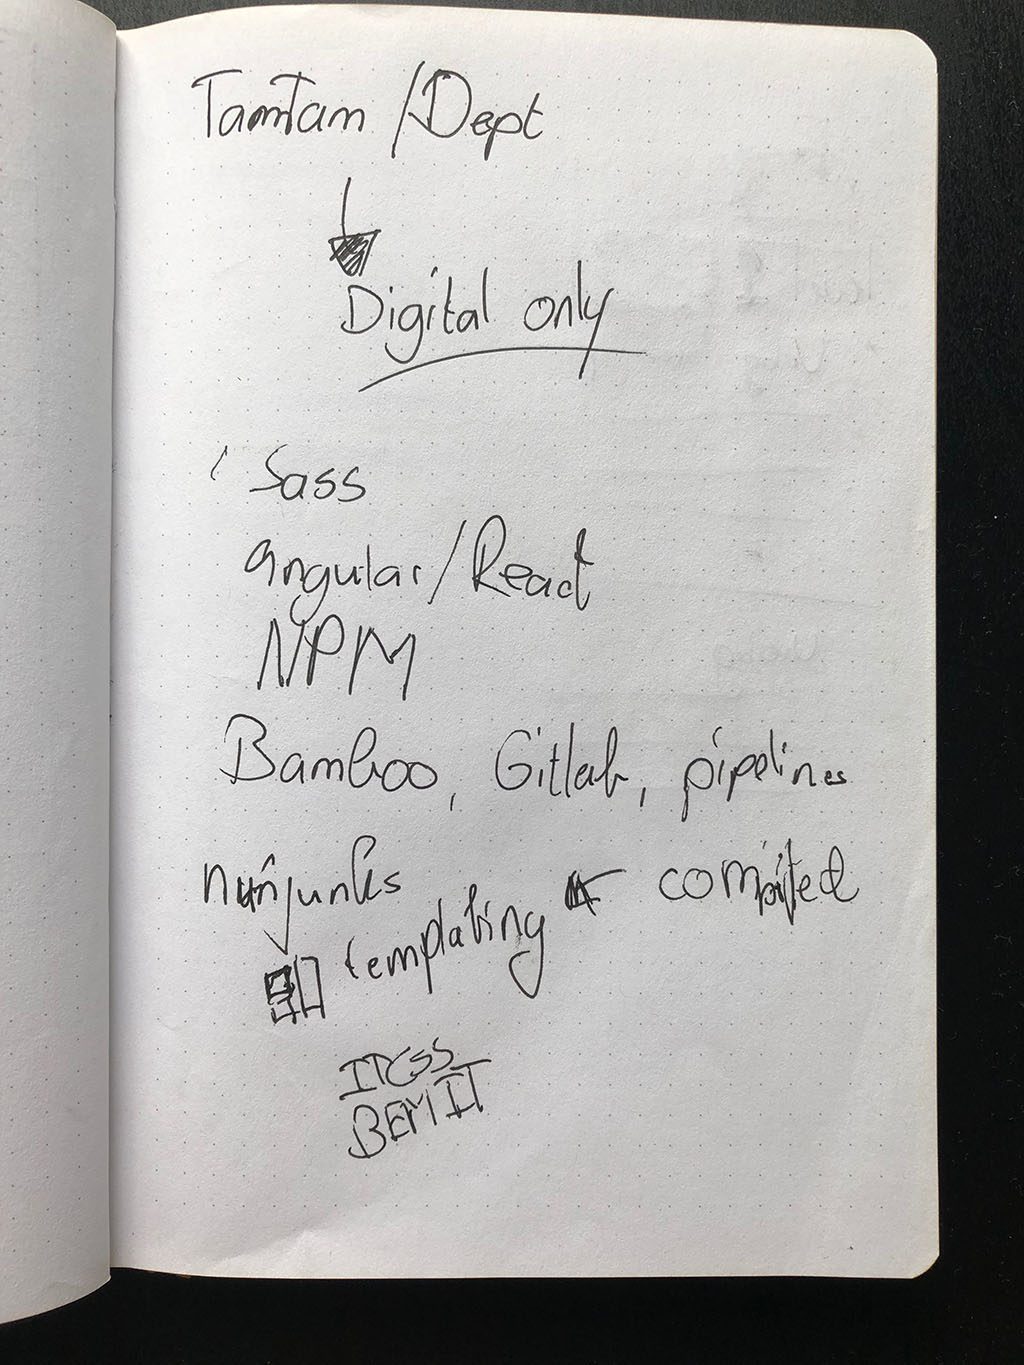 TamTam / Dept
Digital only
Sass
angular/React
NPM
Bamboo, Gitlab, pipelines
nunjunks
templating compiled
ITCSS
BEMIT